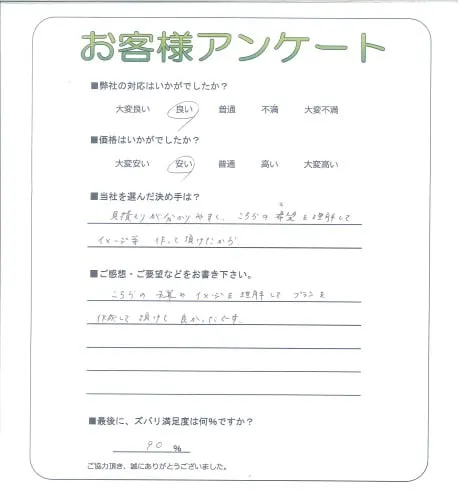 お客様アンケート
■弊社の対応はいかがでしたか？
大変良い 良い 普通 不満 大変不満
■価格はいかがでしたか？
大変安い 安い 普通 高い 大変高い
■当社を選んだ決め手は？
見積りが分かりやすく、こちらの希望を理解して
イメージ等 作って頂けたから
■ご感想・ご要望などをお書き下さい。
こちらの予算やイメージを理解してプランを
作成して頂けて良かったです。
■最後に、ズバリ満足度は何％ですか？
90 ％
ご協力頂き、誠にありがとうございました。